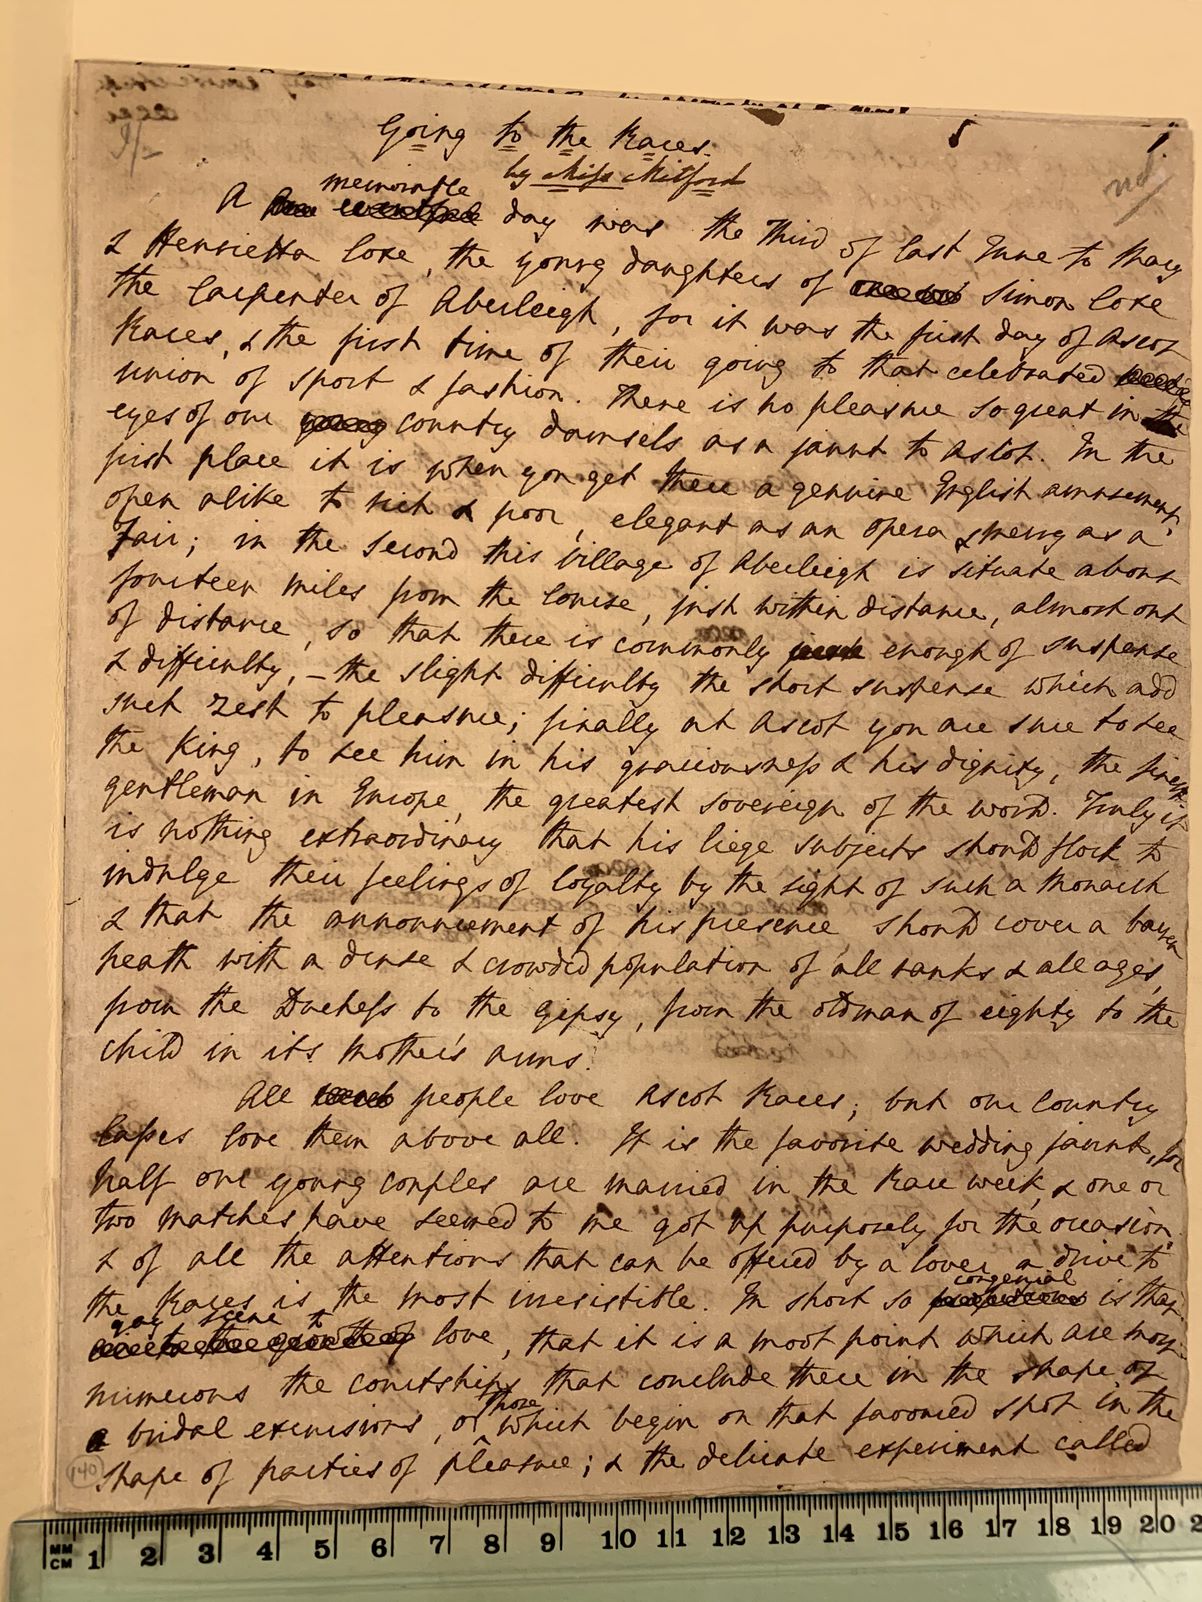 Going to the Races.
by Miss Mitford
memorable
A day was the Third of last June to Mary
& Henrietta Coxe, the young daughters of Simon Coxe
the Carpenter of Aberleigh, for it was the first day of Ascot
Races, & the first time of their going to that celebrated
union of sport & fashion. There is no pleasure so great in the
eyes of our young country damsels as a jaunt to Ascot. In the
first place it is when you get there a genuine English amusement,
open alike to rich & poor, elegant as an opera & merry as a
Fair; in the second this village of Aberleigh is situate about
fourteen miles from the course, just within distance, almost out
of distance, so that there is commonly just enough of suspense
& difficulty, – the slight difficulty the short suspense which add
such zest to pleasure; finally at Ascot you are sure to see
the King, to see him in his graciousness & his dignity, the finest
gentleman in Europe, the greatest sovereign of the world. Truly it
is nothing extraordinary that his liege subjects should flock to
indulge their feelings of loyalty by the sight of such a Monarch
& that the announcement of his presence should cover a barren
heath with a dense & crowded population of all ranks & all ages,
from the Duchess to the gipsy, from the old man of eighty to the
child in its mother's arms.
All people love Ascot Races; but our country
lasses love them above all. It is the favorite wedding jaunt, for
half our young couples are married in the Race week, & one or
two matches have seemed to me got up purposely for the occasion,
& of all the attentions that can be offered by a lover a drive to
congenial
the Races is the most irresistible. In short so is that
gay scene to
love, that it is a moot point which are most
numerous the courtships that conclude there in the shape of
those
bridal excursions, or which begin on that favoured spot in the
shape of parties of pleasure; & the delicate experiment called
140
MM
CM 1 2 3 4 5 6 7 8 9 10 11 12 13 14 15 16 17 18 19 20 2